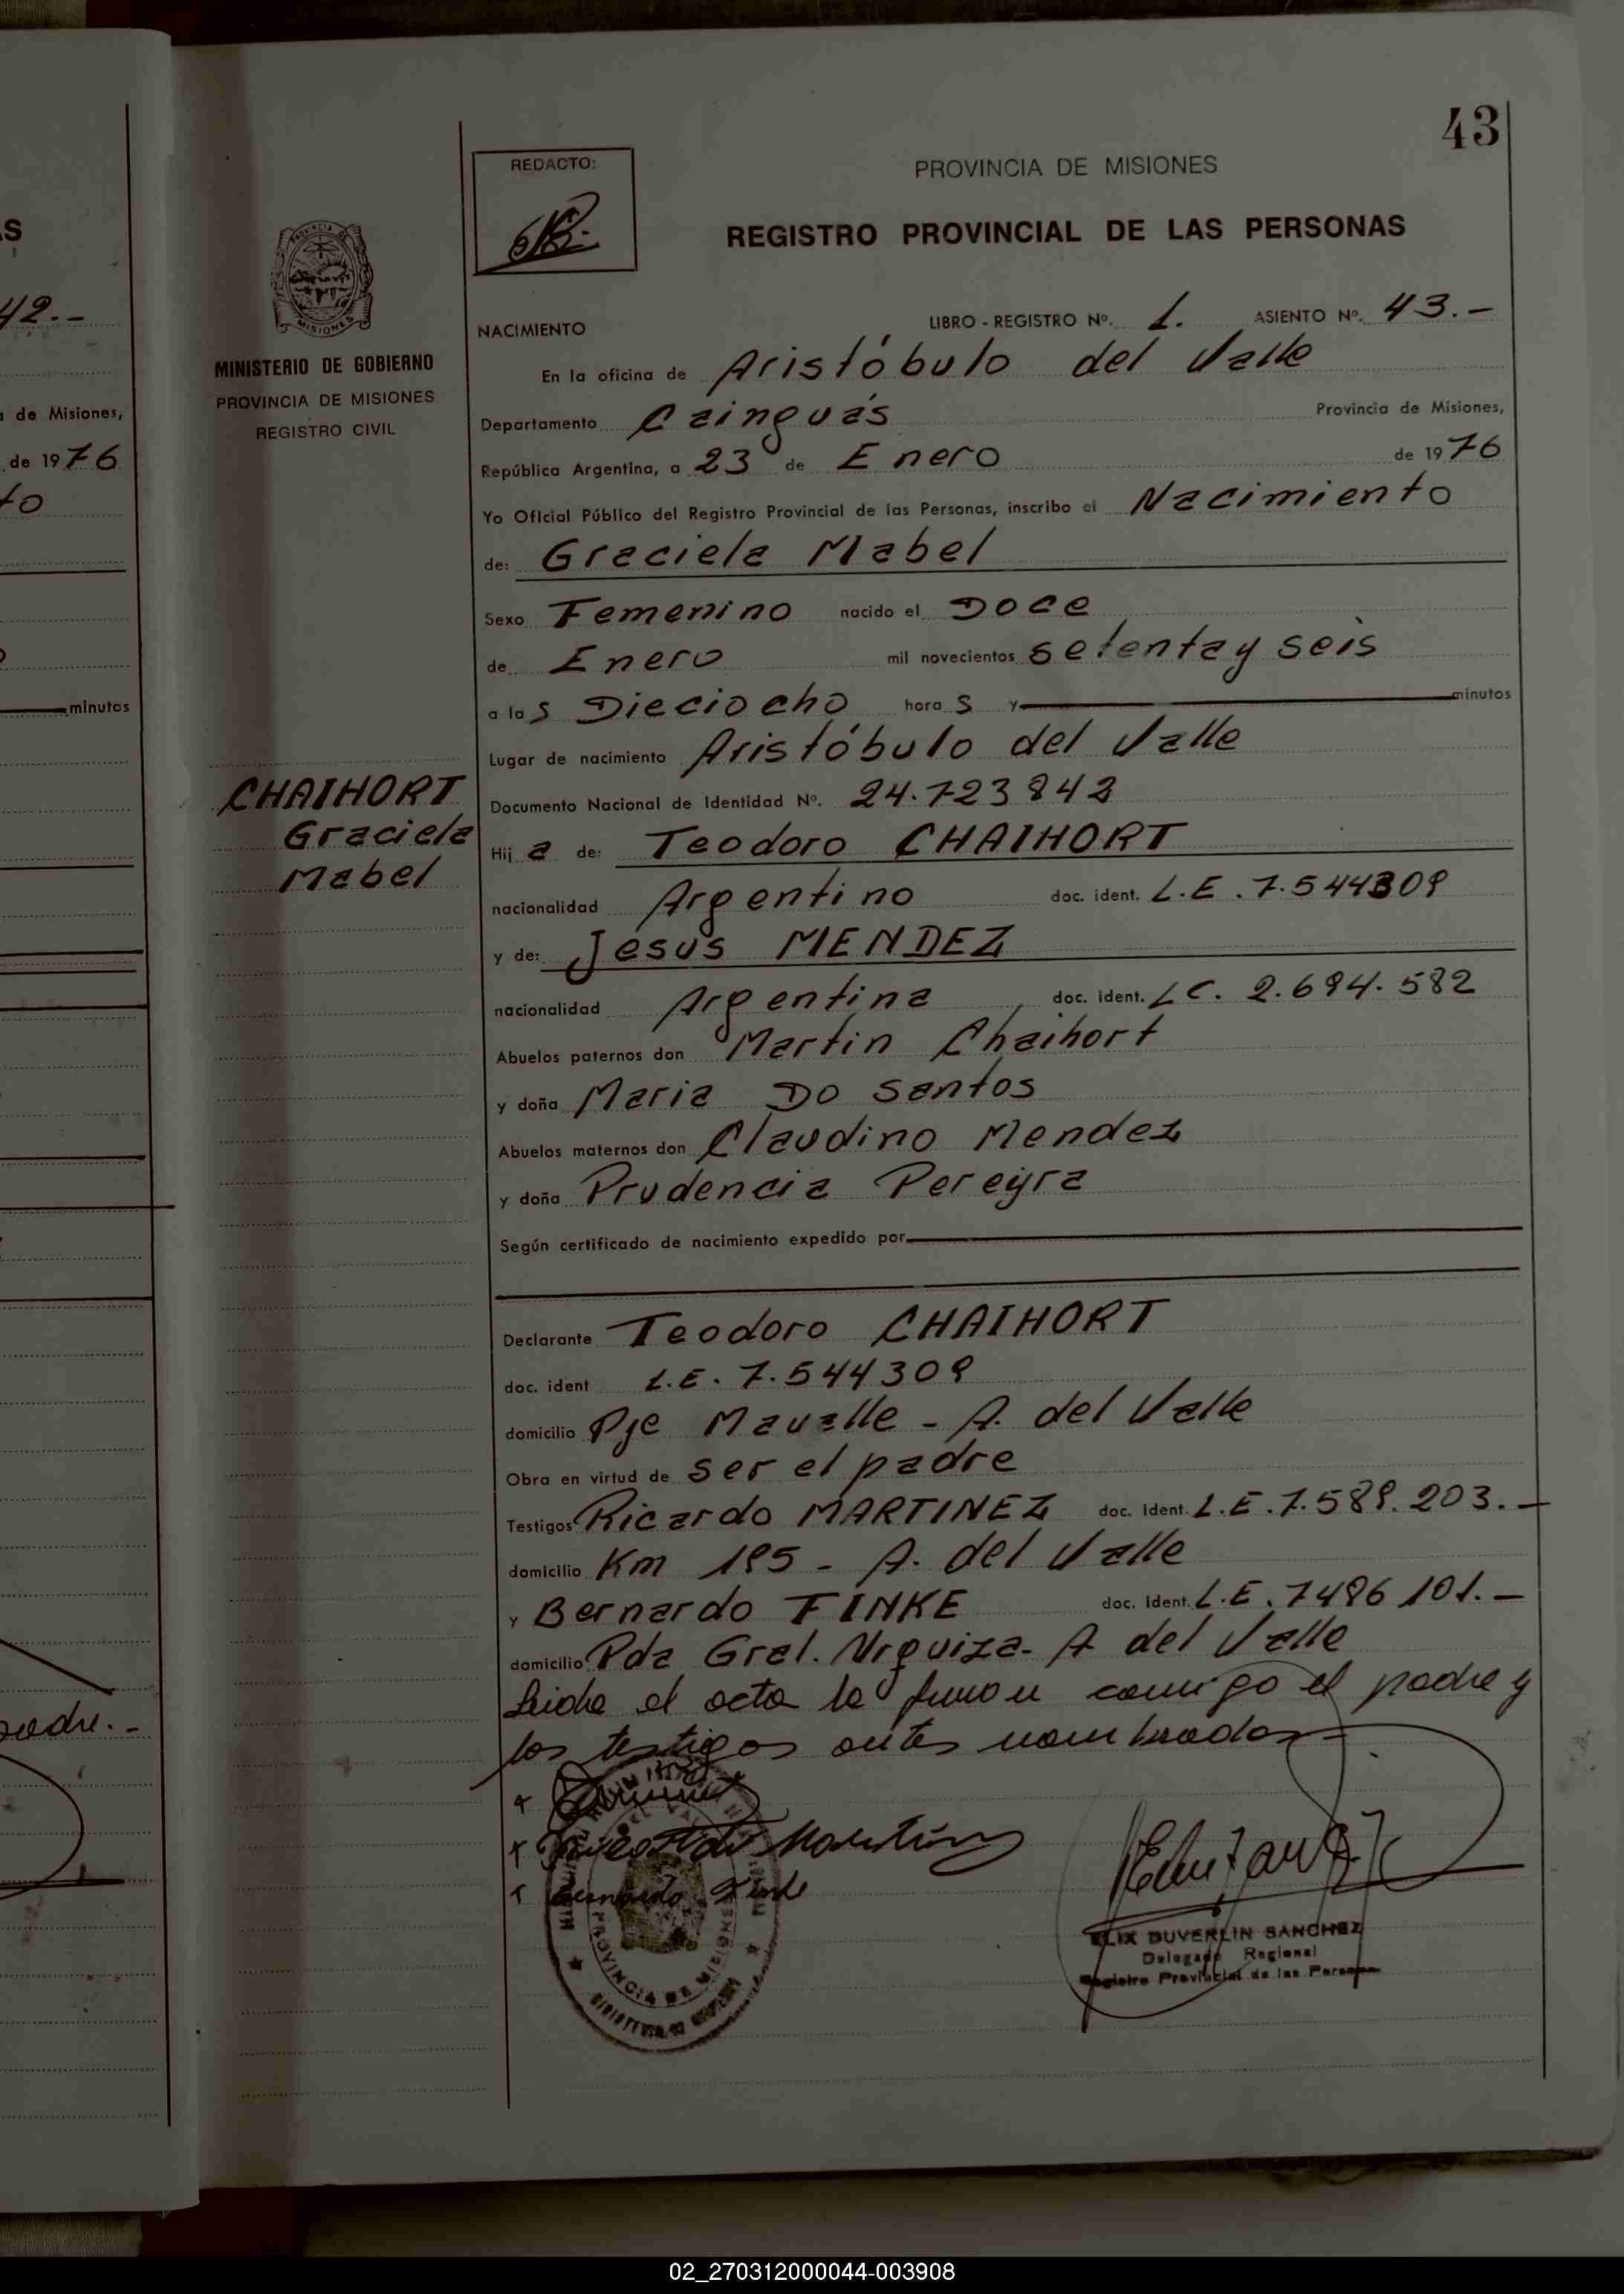 43
REDACTO:
PROVINCIA DE MISIONES
REGISTRO PROVINCIAL DE LAS PERSONAS
MINISTERIO DE GOBIERNO
PROVINCIA DE MISIONES
REGISTRO CIVIL
NACIMIENTO LIBRO - REGISTRO Nº. 1. ASIENTO Nº. 43.-
En la oficina de Aristóbulo del Valle
Departamento Cainguás Provincia de Misiones,
República Argentina, a 23 de Enero de 1976
Yo Oficial Público del Registro Provincial de las Personas, inscribo el Nacimiento
de: Graciela Mabel
Sexo Femenino nacido el Doce
de Enero mil novecientos setenta y seis
a las Dieciocho horas y minutos
Lugar de nacimiento Aristóbulo del Valle
CHAIHORT
Graciela
Mabel
Documento Nacional de Identidad Nº. 24.723842
Hija de: Teodoro CHAIHORT
nacionalidad Argentino doc. ident. L.E. 7.544309
y de: Jesus MENDEZ
nacionalidad Argentina doc. ident. LC. 2.694.582
Abuelos paternos don Martin Chaihort
y doña Maria Do Santos
Abuelos maternos don Claudino Mendez
y doña Prudencia Pereyra
Según certificado de nacimiento expedido por
Declarante Teodoro CHAIHORT
doc. ident L.E. 7.544309
domicilio Pje Mavalle - A. del Valle
Obra en virtud de ser el padre
Testigos Ricardo MARTINEZ doc. ident. L.E. 7.589.203.-
domicilio Km 195 - A. del Valle
y Bernardo FINKE doc. Ident. L.E. 7496101.-
domicilio Pda Gral. Urquiza - A del Valle
Leida el acta la firman conmigo el padre y
los testigos antes nombrados
Bernardo Finke
PROVINCIA DE MISIONES
FELIX DUVERLIN SANCHEZ
Delegado Regional
Registro Provincial de las Personas
42.-
a de Misiones,
de 1976
to
minutos
padre.-
02_270312000044-003908